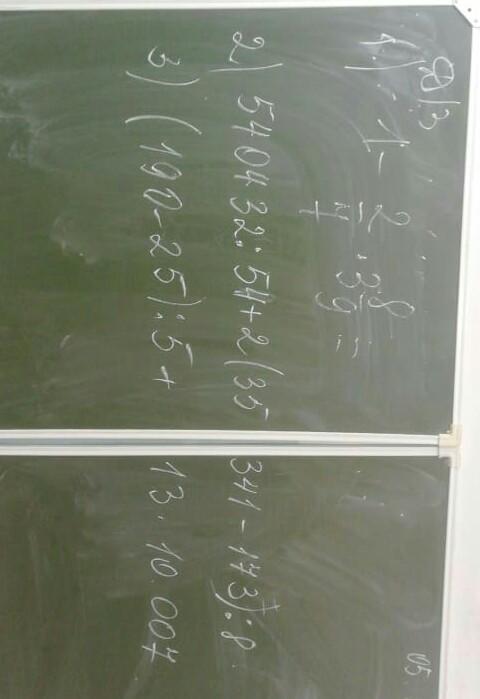 Д/З
1) 1 - 2/7 · 3 8/9 =
2) 540432:54+2(35341-173):8
3) (190-25):5+13·10.007